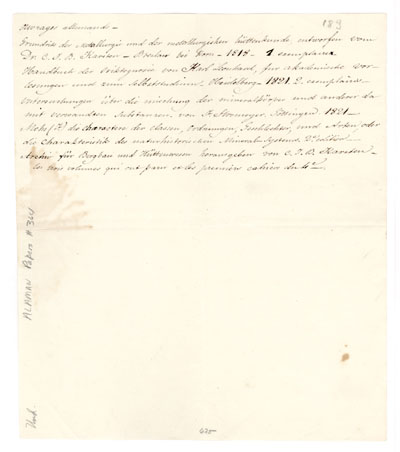 189
Ouvrages allemands -
Grundriss der Metallurgie und der metallurgischen Hüttenkunde entworfen vom
Dr. C. J. B. Karsten - Breslau bei Korn - 1818 - 1 exemplaire
Handbuch der Oriktognosie von Karl Leonhard, für akademische Vor
lesungen und zum Selbststudium, Heidelberg 1821. 2 exemplaires
Untersuchungen über die Mischung der Mineralkörper und anderer da
mit verwandten Substanzen, von Fr. Stromeyer, Göttingen 1821 -
Mohs (F) die Charactere der Classen, Ordnungen, Geschlechter, und Arten oder
die Charakteristik des naturhistorischen Mineral-Systems. 2e édition
Archiv für Bergbau und Hüttenwesen herausgegeben von C. J. B. Karsten -
les trois volumes qui ont paru et les premiers cahiers du 4e -
ALAMAN Papers # 364
635